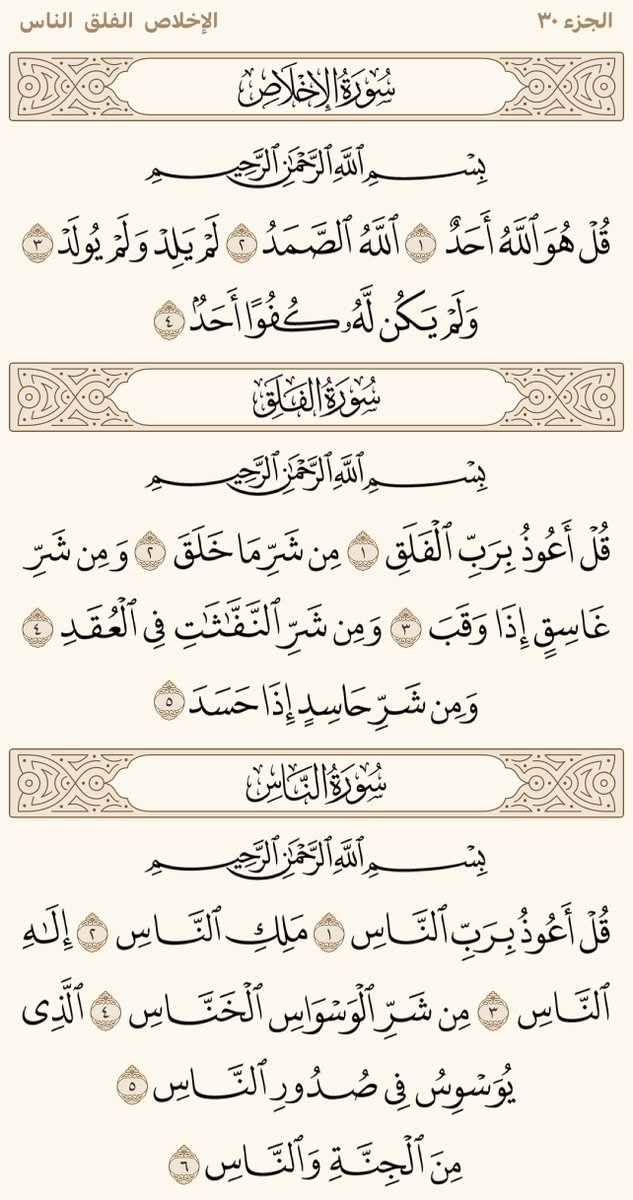 الجزء ٣٠ الإخلاص الفلق الناس
سُورَةُ الإِخْلَاصِ
بِسْمِ ٱللَّهِ ٱلرَّحْمَٰنِ ٱلرَّحِيمِ
قُلْ هُوَ ٱللَّهُ أَحَدٌ ١ ٱللَّهُ ٱلصَّمَدُ ٢ لَمْ يَلِدْ وَلَمْ يُولَدْ ٣
وَلَمْ يَكُن لَّهُۥ كُفُوًا أَحَدٌۢ ٤
سُورَةُ الفَلَقِ
بِسْمِ ٱللَّهِ ٱلرَّحْمَٰنِ ٱلرَّحِيمِ
قُلْ أَعُوذُ بِرَبِّ ٱلْفَلَقِ ١ مِن شَرِّ مَا خَلَقَ ٢ وَمِن شَرِّ
غَاسِقٍ إِذَا وَقَبَ ٣ وَمِن شَرِّ ٱلنَّفَّٰثَٰتِ فِى ٱلْعُقَدِ ٤
وَمِن شَرِّ حَاسِدٍ إِذَا حَسَدَ ٥
سُورَةُ النَّاسِ
بِسْمِ ٱللَّهِ ٱلرَّحْمَٰنِ ٱلرَّحِيمِ
قُلْ أَعُوذُ بِرَبِّ ٱلنَّاسِ ١ مَلِكِ ٱلنَّاسِ ٢ إِلَٰهِ
ٱلنَّاسِ ٣ مِن شَرِّ ٱلْوَسْوَاسِ ٱلْخَنَّاسِ ٤ ٱلَّذِى
يُوَسْوِسُ فِى صُدُورِ ٱلنَّاسِ ٥
مِنَ ٱلْجِنَّةِ وَٱلنَّاسِ ٦